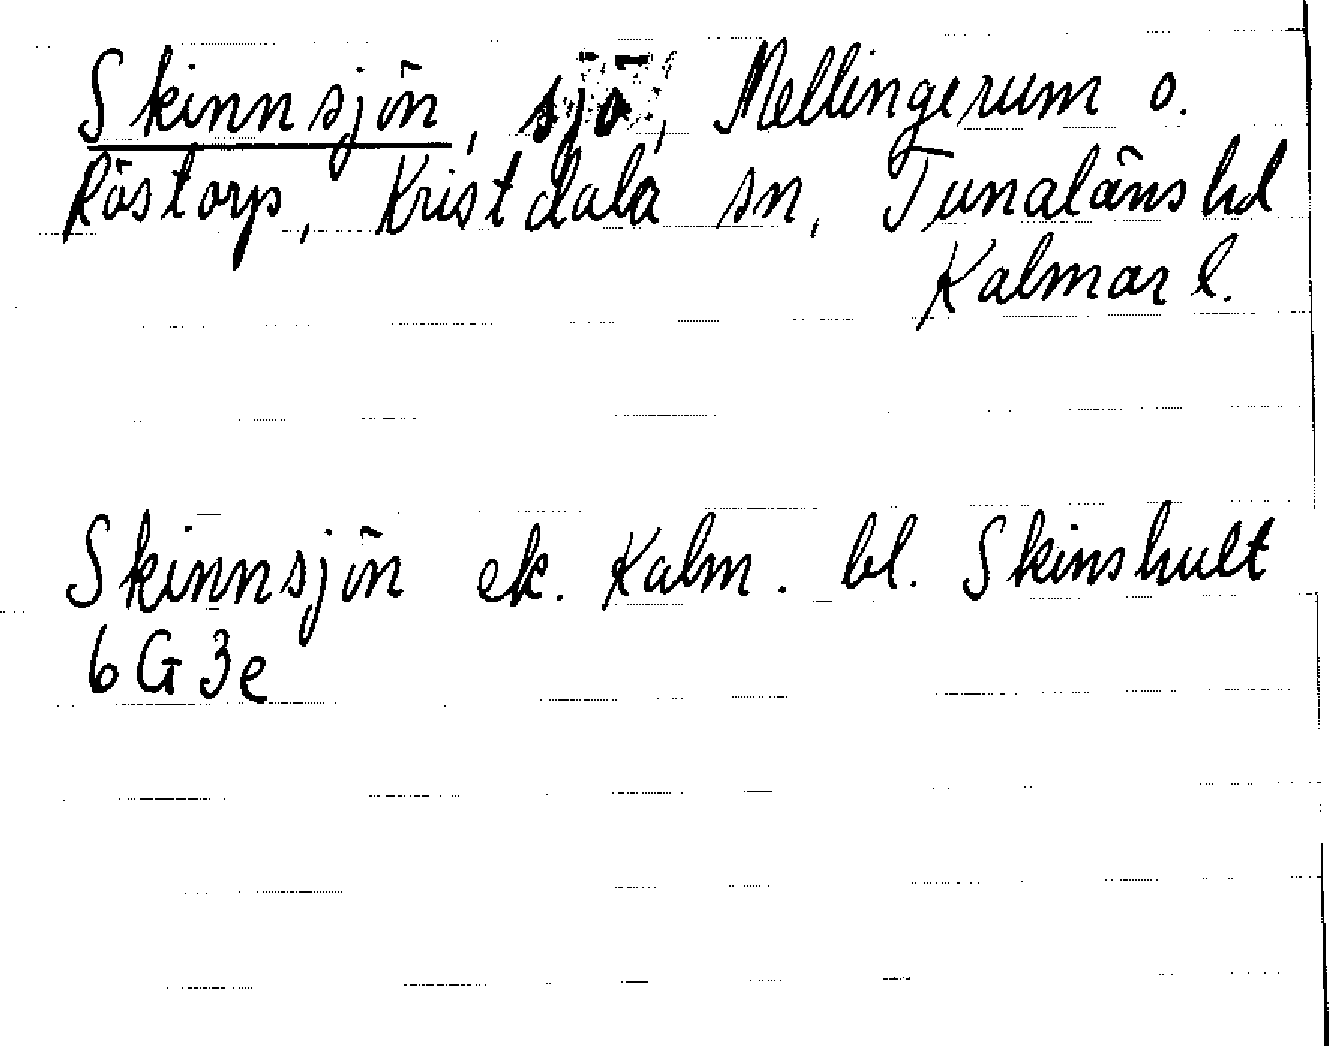 Skinnsjön, sjö, Mellingerum o.
Röstorp, Kristdala sn, Tunaläns hd
Kalmar l.
Skinnsjön ek. Kalm. bl. Skinshult
6G3e